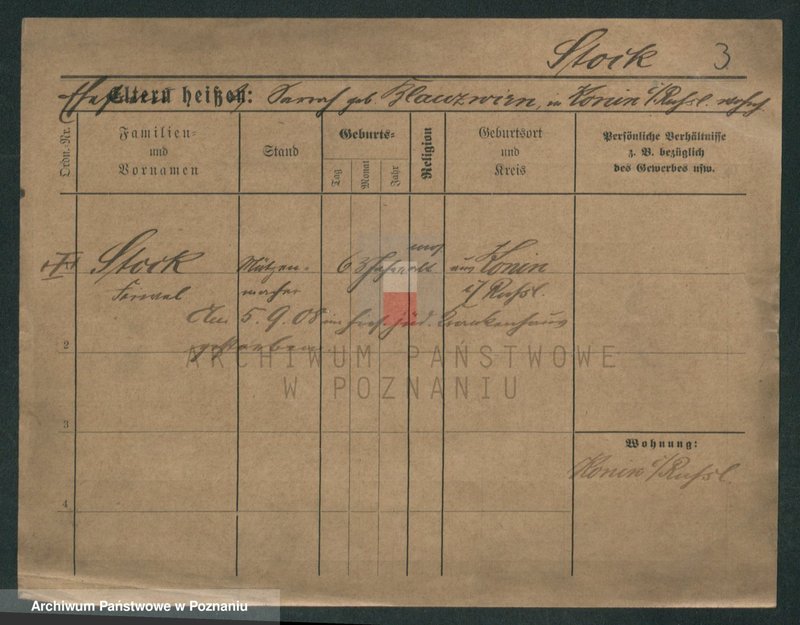 Stock 3
Eltern heißen: Sarah geb. Blauzwirn, in Konin i/Rußl. wohnh
Ordn.-Nr.
Familien-
und
Vornamen
Stand
Geburts-
Tag
Monat
Jahr
Religion
Geburtsort
und
Kreis
Persönliche Verhältnisse
z. B. bezüglich
des Gewerbes usw.
mos
Stock Mützen- 63 Jahre alt aus Konin
macher i/Rußl.
Am 5.9.08 im jüd. Krankenhaus
gestorben.
2
3
4
Wohnung:
Konin i/Rußl.
ARCHIWUM PAŃSTWOWE
W POZNANIU
Archiwum Państwowe w Poznaniu